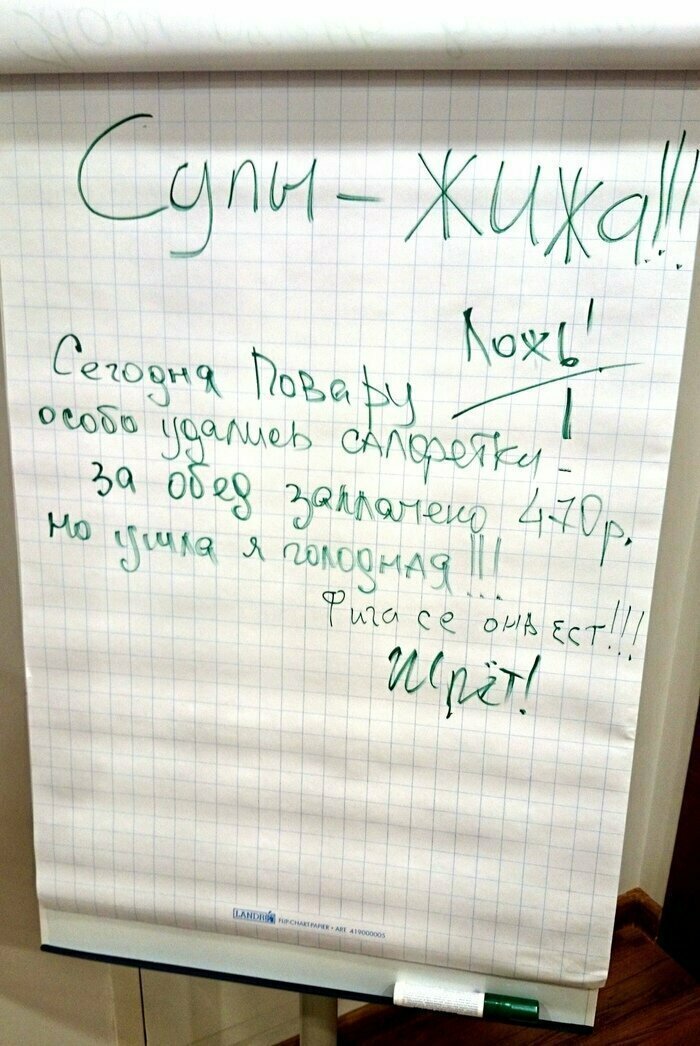 Супы - жижа!!!
Ложь!
Сегодня Повару
особо удались салфетки -
за обед заплачено 470р.
но ушла я голодная!!!
Фига се она ест!!!
Жрёт!
LANDRÉ FLIP-CHARTPAPIER • ART. 419000005